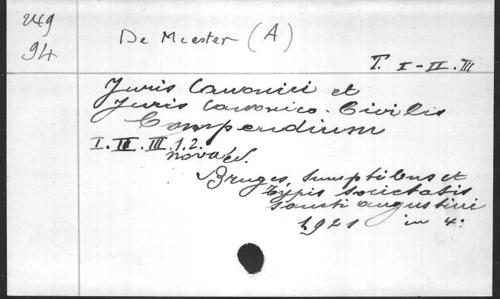 249
94
De Meester (A)
T. I - II. III
Juris Canonici et
Juris Canonico-Civilis
Compendium
I. II. III.1.2.
nova ed.
Bruges, Sumptibus et
typis societatis
Sancti Augustini
1921 in 4: